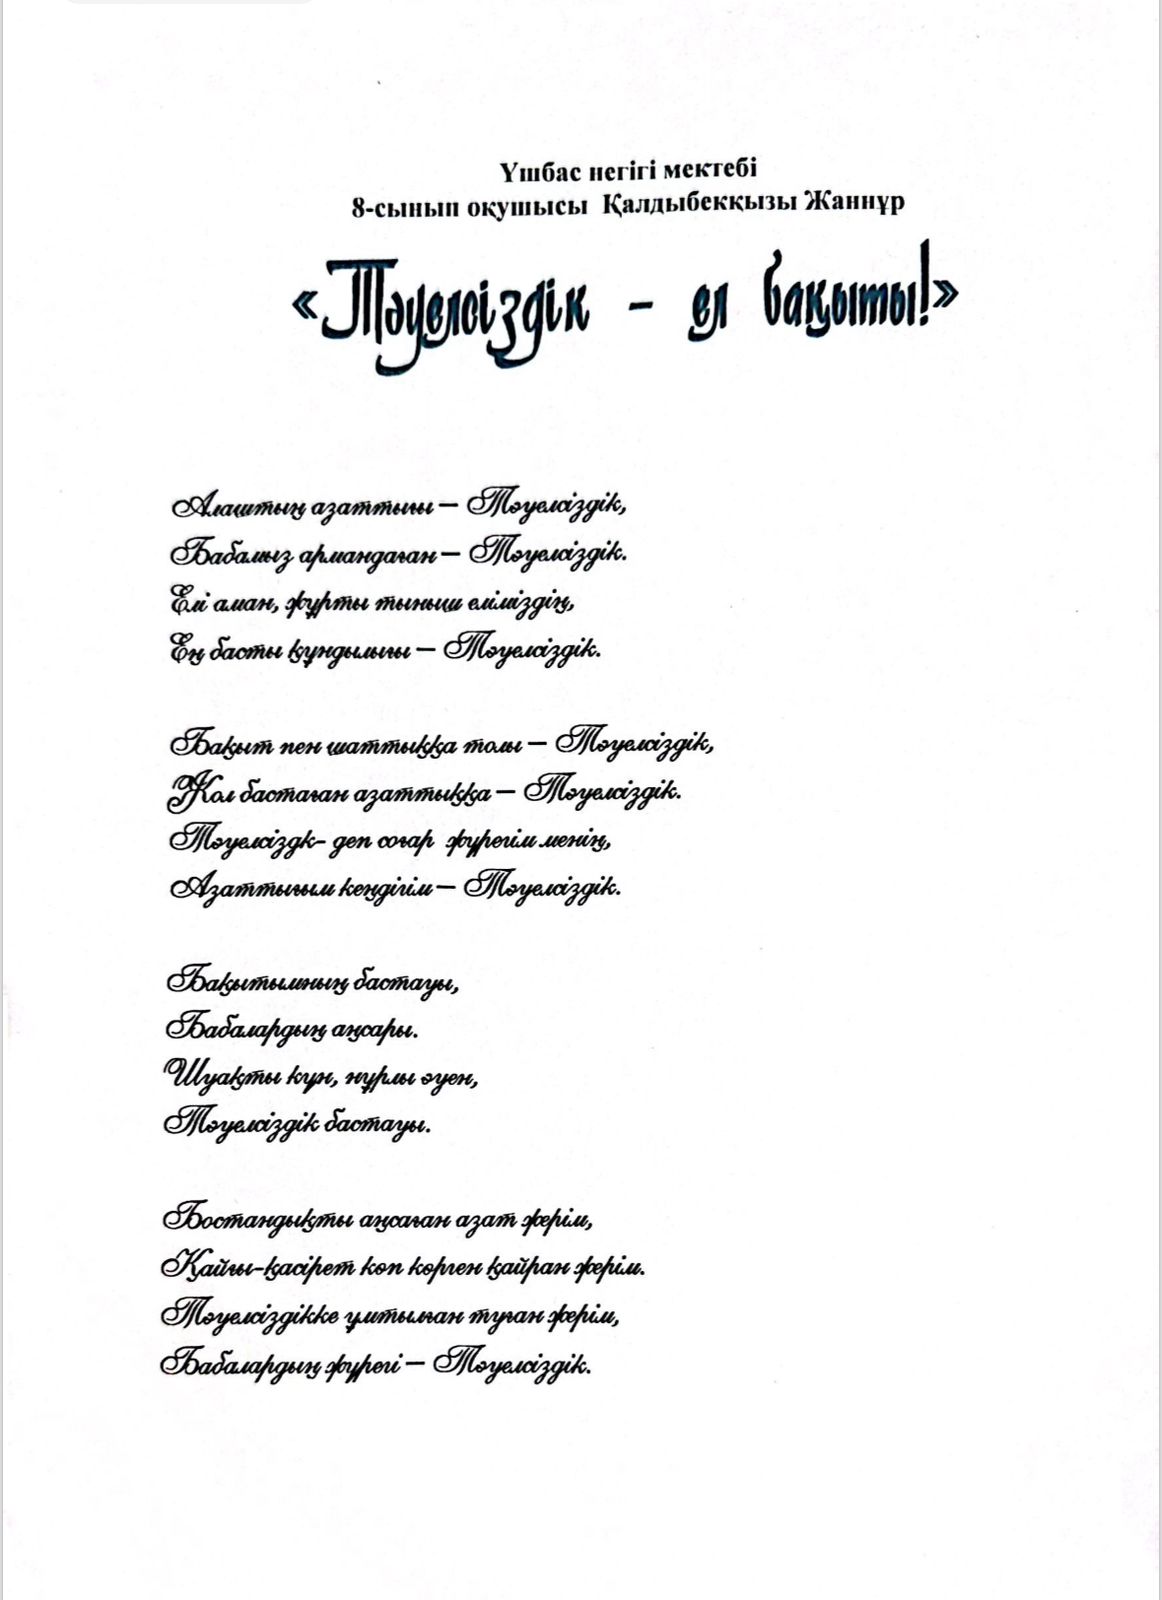 Үшбас негігі мектебі
8-сынып оқушысы Қалдыбекқызы Жаннұр
«Тәуелсіздік - ел бақыты!»
Алаштың азаттығы – Тәуелсіздік,
Бабамыз армандаған – Тәуелсіздік.
Елі аман, жұрты тыныш еліміздің,
Ең басты құндылығы – Тәуелсіздік.
Бақыт пен шаттыққа толы – Тәуелсіздік,
Жол бастаған азаттыққа – Тәуелсіздік.
Тәуелсіздк- деп соғар жүрегім менің,
Азаттығым кеңдігім – Тәуелсіздік.
Бақытымның бастауы,
Бабалардың аңсары.
Шуақты күн, нұрлы әуен,
Тәуелсіздік бастауы.
Бостандықты аңсаған азат жерім,
Қайғы-қасірет көп көрген қайран жерім.
Тәуелсіздікке ұмтылған туған жерім,
Бабалардың жүрегі – Тәуелсіздік.